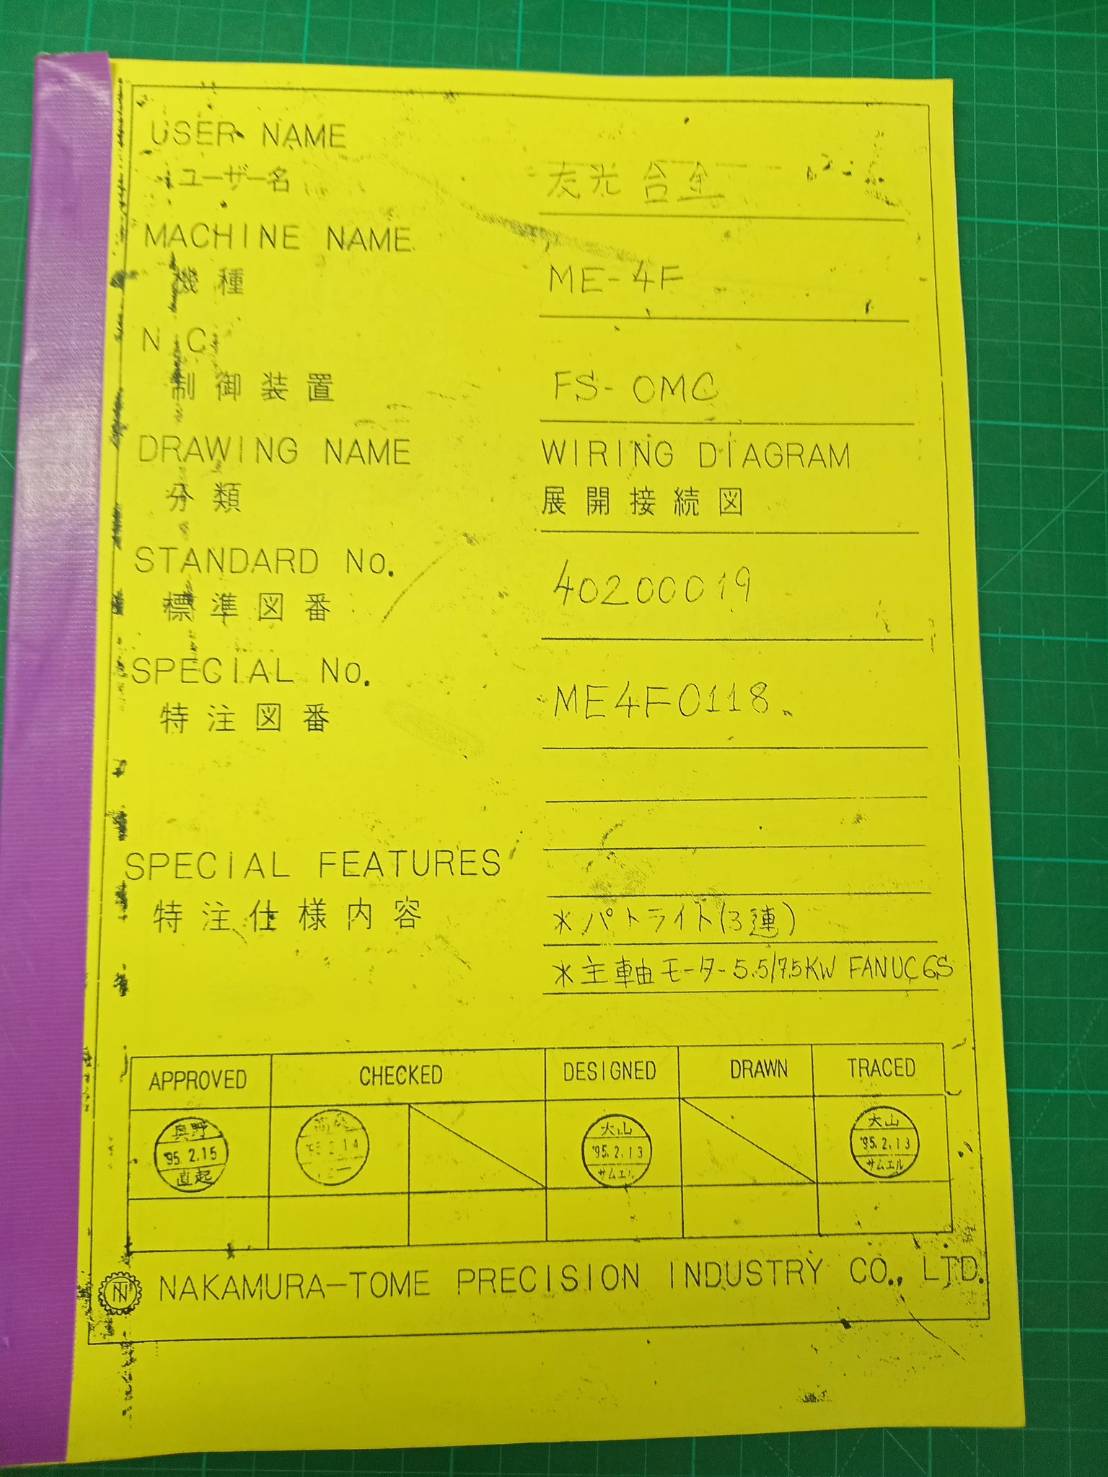 USER NAME
ユーザー名
友光合金
MACHINE NAME
機種
ME-4F
N C
制御装置
FS-OMC
DRAWING NAME
WIRING DIAGRAM
分類
展開接続図
STANDARD No.
標準図番
40200019
SPECIAL No.
特注図番
ME4F0118
SPECIAL FEATURES
特注仕様内容
*パトライト(3連)
*主軸モーター5.5/7.5KW FANUC 6S
APPROVED CHECKED DESIGNED DRAWN TRACED
奥野
'95 2.15
直起
'95 2.14
大山
'95.2.13
サムエル
大山
'95.2.13
サムエル
NAKAMURA-TOME PRECISION INDUSTRY CO., LTD.